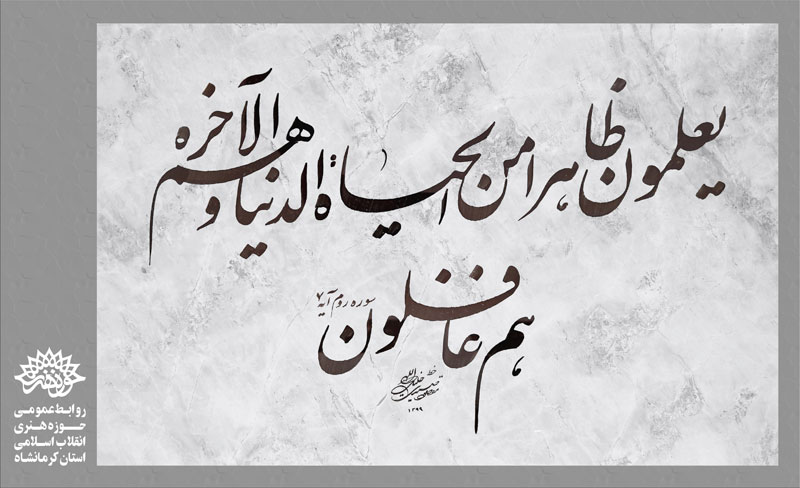 یعلمون ظاهرا من الحیاة الدنیا و هم الآخره
هم غافلون
سوره روم آیه ۷
۱۳۹۹
روابط عمومی
حوزه هنری
انقلاب اسلامی
استان کرمانشاه